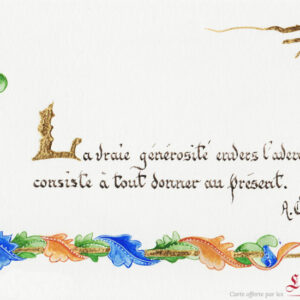 La vraie générosité envers l'aven
consiste à tout donner au présent.
A.
Carte offerte par les